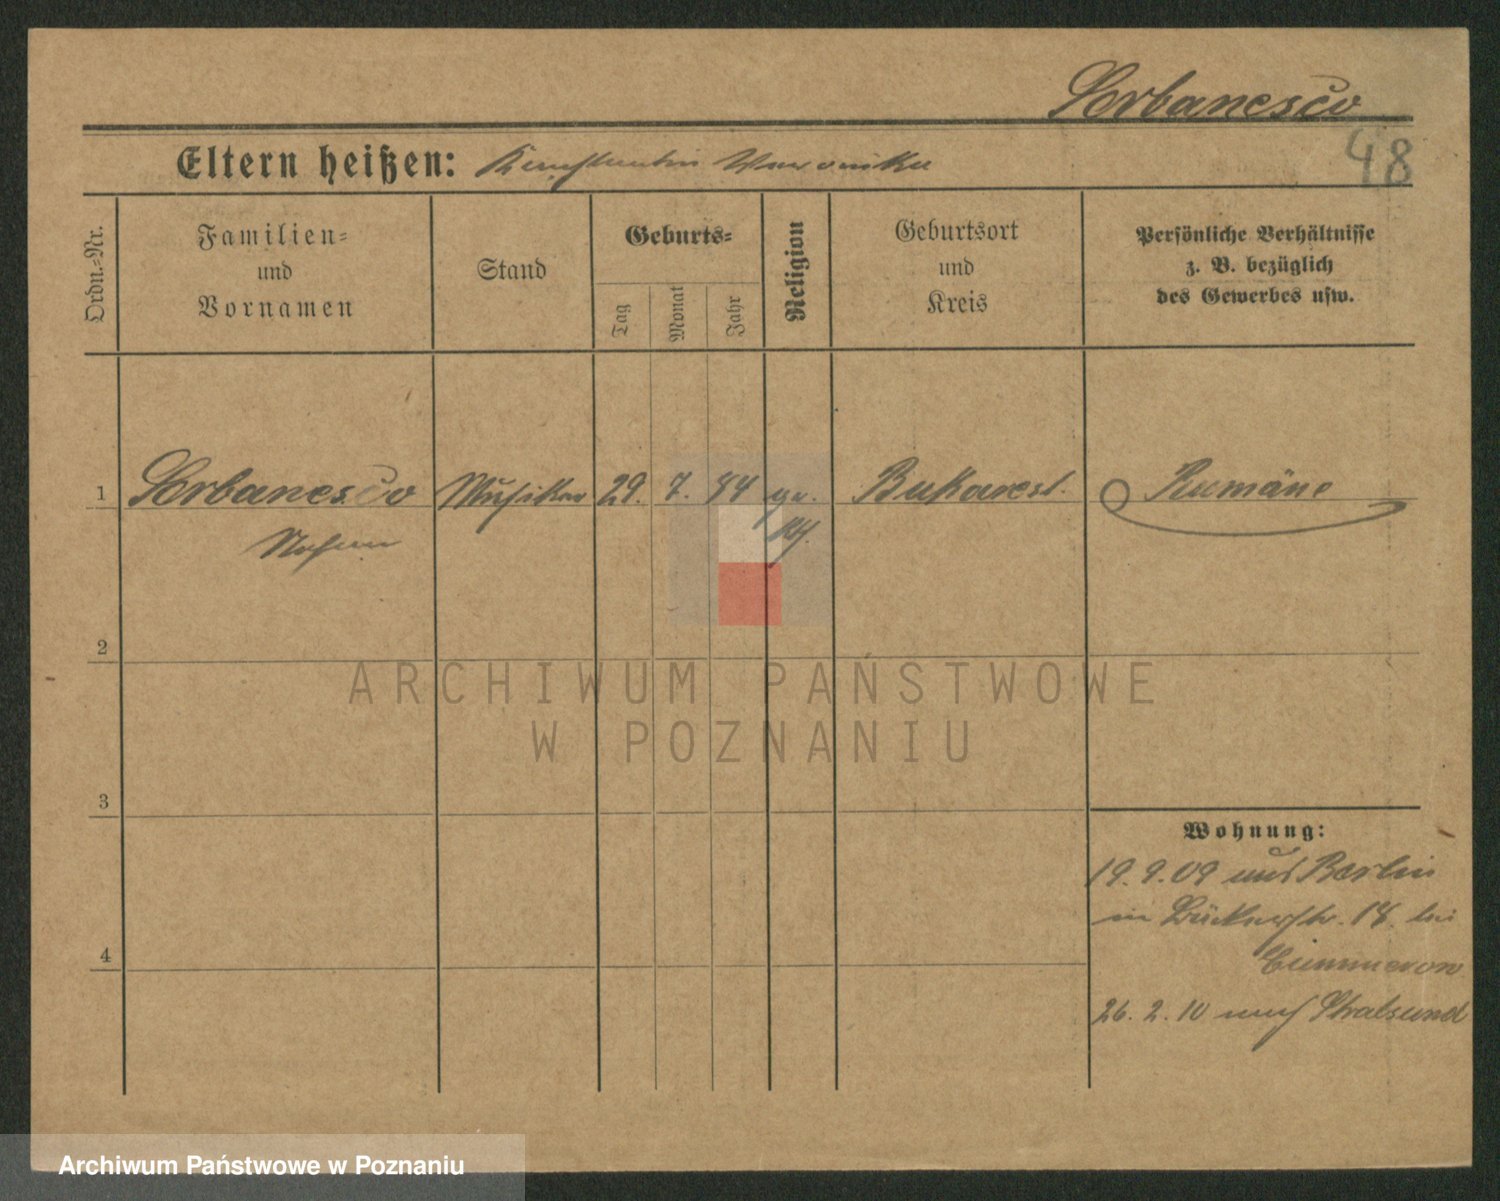 Sorbanesco
48
Eltern heißen: Konstantin Veronika
Ordn.-Nr.
Familien-
und
Vornamen
Stand
Geburts-
Tag
Monat
Jahr
Religion
Geburtsort
und
Kreis
Persönliche Verhältnisse
z. B. bezüglich
des Gewerbes usw.
1 Sorbanesco Musiker 29. 7. 84 gr. Bukarest. Rumäne
2
3
4
Wohnung:
19. 9. 09 aus Berlin
in 18. bei
26. 2. 10 nach Stralsund
ARCHIWUM PAŃSTWOWE
W POZNANIU
Archiwum Państwowe w Poznaniu